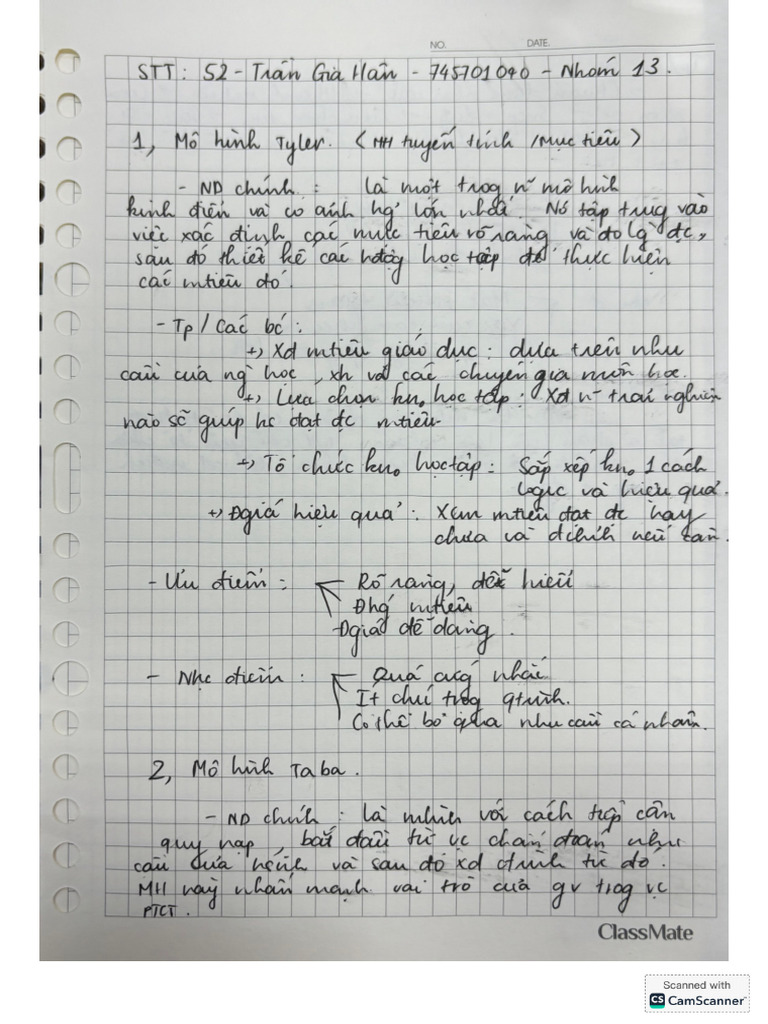 NO. DATE.
STT: 52 - Trần Gia Hân - 745701040 - Nhóm 13.
1, Mô hình Tyler. (MH tuyến tính / Mục tiêu)
- ND chính : là một trog n~ mô hình
kinh điển và có ảnh hg' lớn nhất. Nó tập trug vào
việc xác định các mục tiêu rõ ràng và đo lg đc,
sau đó thiết kế các hđộg học tập để thực hiện
các mtiêu đó.
- Tp / Các bc' :
+) Xđ mtiêu giáo dục : dựa trên nhu
cầu của ng học, xh và các chuyên gia môn học.
+) Lựa chọn kn. học tập : Xđ n~ trải nghiệm
nào sẽ giúp hs đạt đc mtiêu.
+) Tổ chức kn. học tập : Sắp xếp kn. 1 cách
logic và hiệu quả.
+) Đgiá hiệu quả : Xem mtiêu đạt đc hay
chưa và đchỉnh nếu cần.
- Ưu điểm : Rõ ràng, dễ hiểu
Đhg' mtiêu
Đgiá dễ dàng.
- Nhc điểm : Quá cứg nhắc
Ít chú trọg qtrình.
Có thể bỏ qua nhu cầu cá nhân.
2, Mô hình Taba.
- ND chính : là mhình với cách tiếp cận
quy nạp, bắt đầu từ vc chẩn đoán nhu
cầu của hsinh và sau đó xd ctrình từ đó.
MH này nhấn mạnh vai trò của gv trog vc
PTCT.
ClassMate
Scanned with
CS CamScanner